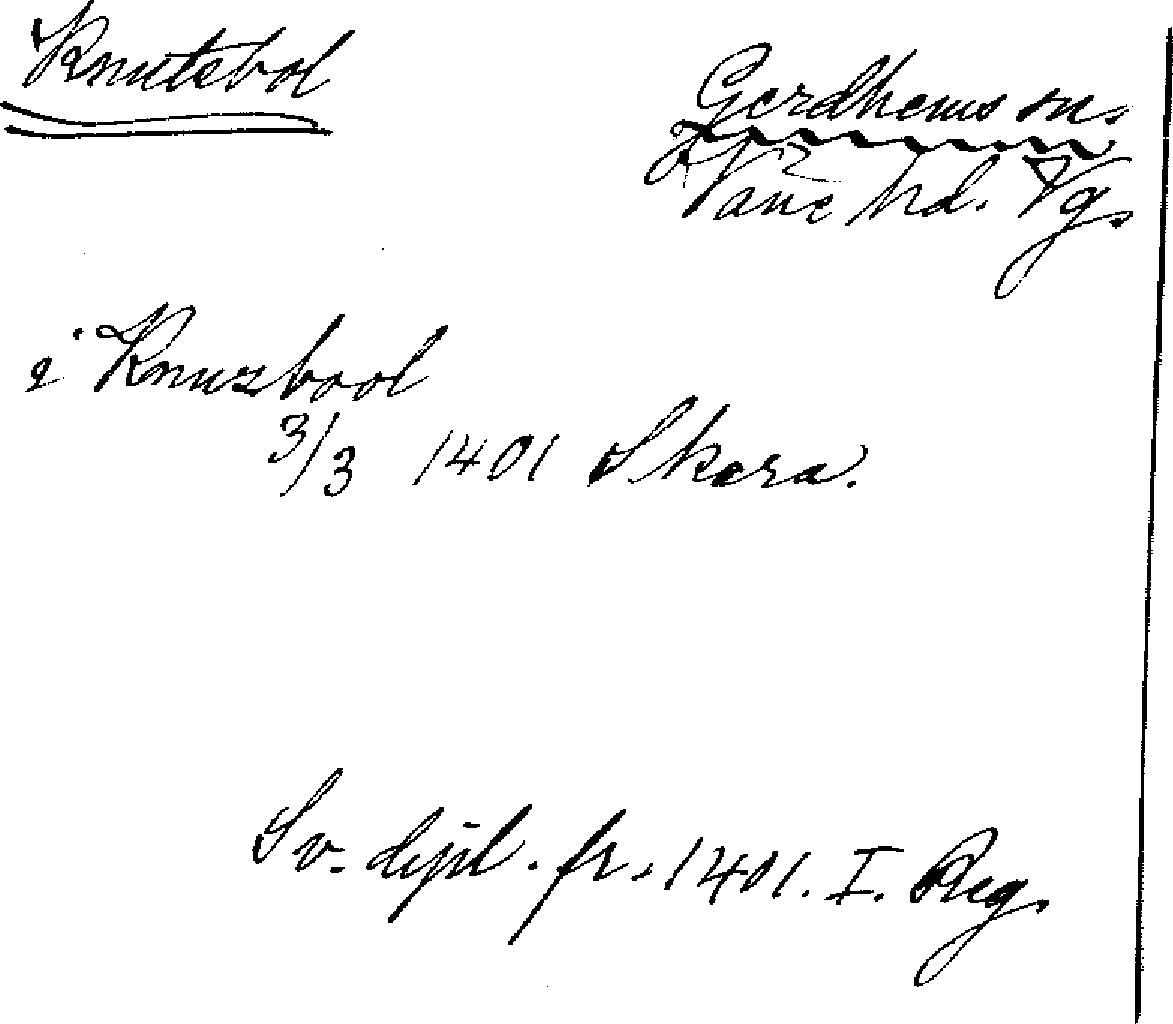 Knutsbol
Gerdhems sn.
Väne hd. Vg.
i Knuzbool
3/3 1401 Skara.
Sv. dipl. fr. 1401. I. Reg.